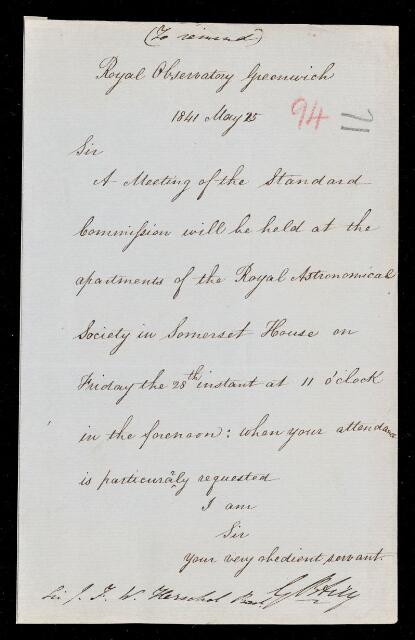 (To remind)
Royal Observatory Greenwich
1841 May 25
94
11
Sir
A Meeting of the Standard
Commission will be held at the
apartments of the Royal Astronomical
Society in Somerset House on
Friday the 28th instant at 11 o'clock
in the forenoon: when your attendance
is particularly requested
I am
Sir
Your very obedient servant
Sir J. F. W. Herschel Bart
G B Airy